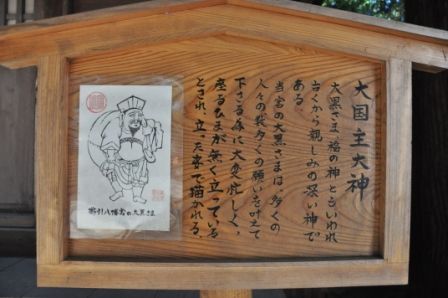 大国主大神
大黒さま、福の神といわれ
古くから親しみの深い神で
ある。
当宮の大黒さまは、多くの
人々の袋多くの願いを叶えて
下さる為に大変忙しく、
座るひまが無く立っている
とされ、立った姿で描かれる。
櫛引八幡宮の大黒さま